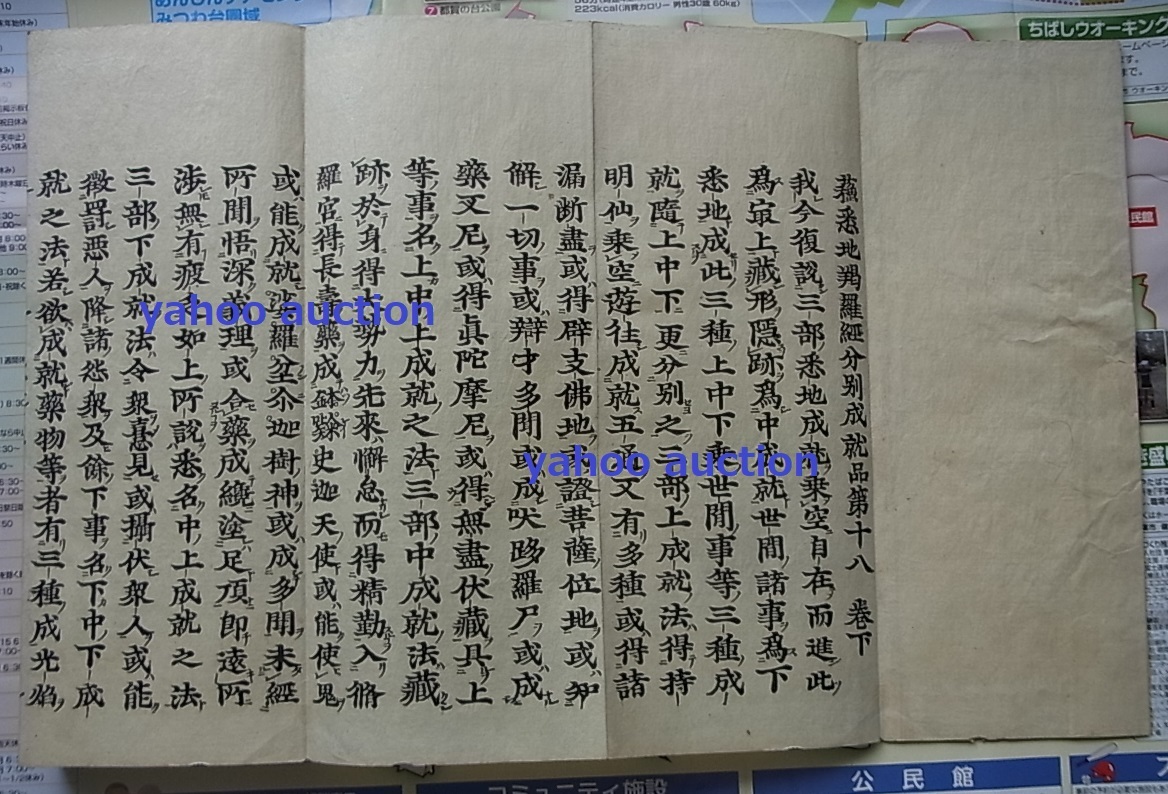 蘓悉地羯羅經分別成就品第十八 卷下
我今復說三部悉地成就乗空自在而進此
爲㝡上藏形隱跡爲中成就世間諸事爲下
悉地成此三種上中下 世間事等三種成
就隨上中下更分別之三部上成就法得持
明仙乘空遊往成就五通又有多種或得諸
漏断盡或得辟支佛地或證菩薩位地或知
解一切事或辯才多聞或成吠跢羅尸或成
藥叉尼或得眞陀摩尼或得無盡伏藏具上
等事名上中上成就之法三部中成就法藏
跡於身得大勢力先來懈怠而得精勤入脩
羅官得長壽藥成鉢 史迦天使或能使鬼
或能成就娑羅坌尒迦樹神或成多聞未經
所聞悟深義理或合藥成纔塗足頂即遠所
涉無有疲 如上所說悉名中上成就之法
三部下成就法令衆憙見或攝伏衆人或能
徵罸惡人降諸怨衆及餘下事名下中下成
就之法若欲成就藥物等者有三種成光焰
yahoo auction
yahoo auction
あんしんケアセンター
みつわ台圏域
⑦都賀の台公園
223kcal(消費カロリー 男性30歳 60kg)
ちばしウオーキング
コミュニティ施設
公民館